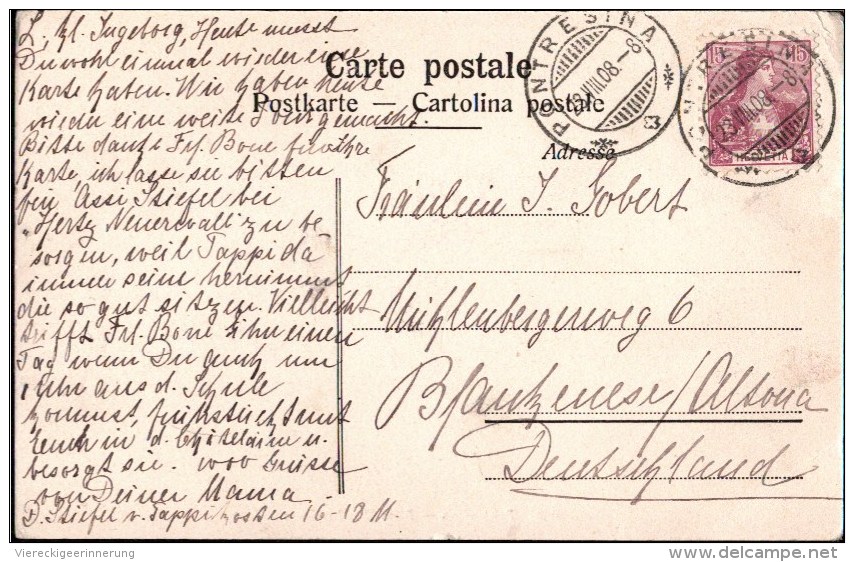 L. kl. Ingeborg, Heute musst
Du wohl einmal wieder eine
Karte haben. Wir haben heute
wieder eine weite Tour gemacht.
Bitte danke Frl. Bone für ihre
Karte, ich lasse sie bitten
für Assi Stiefel bei
"Hertz Neuerwall" zu be-
sorgen, weil Pappi da
immer seine hernimmt
die so gut sitzen. Vielleicht
trifft Frl. Bone ihn einen
Tag wenn Du auch um
1 Uhr aus d. Schule
kommst, frühstückt mit
Euch in d. Châtelaine u.
besorgt sie. 1000 Grüsse
von Deiner Mama
D. Stiefel v. Pappi kosten 16-18 M.
Carte postale
Postkarte — Cartolina postale
Adresse
PONTRESINA
13.VIII.08.-8
PONTRESINA
13.VIII.08.-8
15
15
HELVETIA
Fräulein I. Gobert
Mühlenbergerweg 6
Blankenese/Altona
Deutschland
Viereckigeerinnerung
delcampe.net